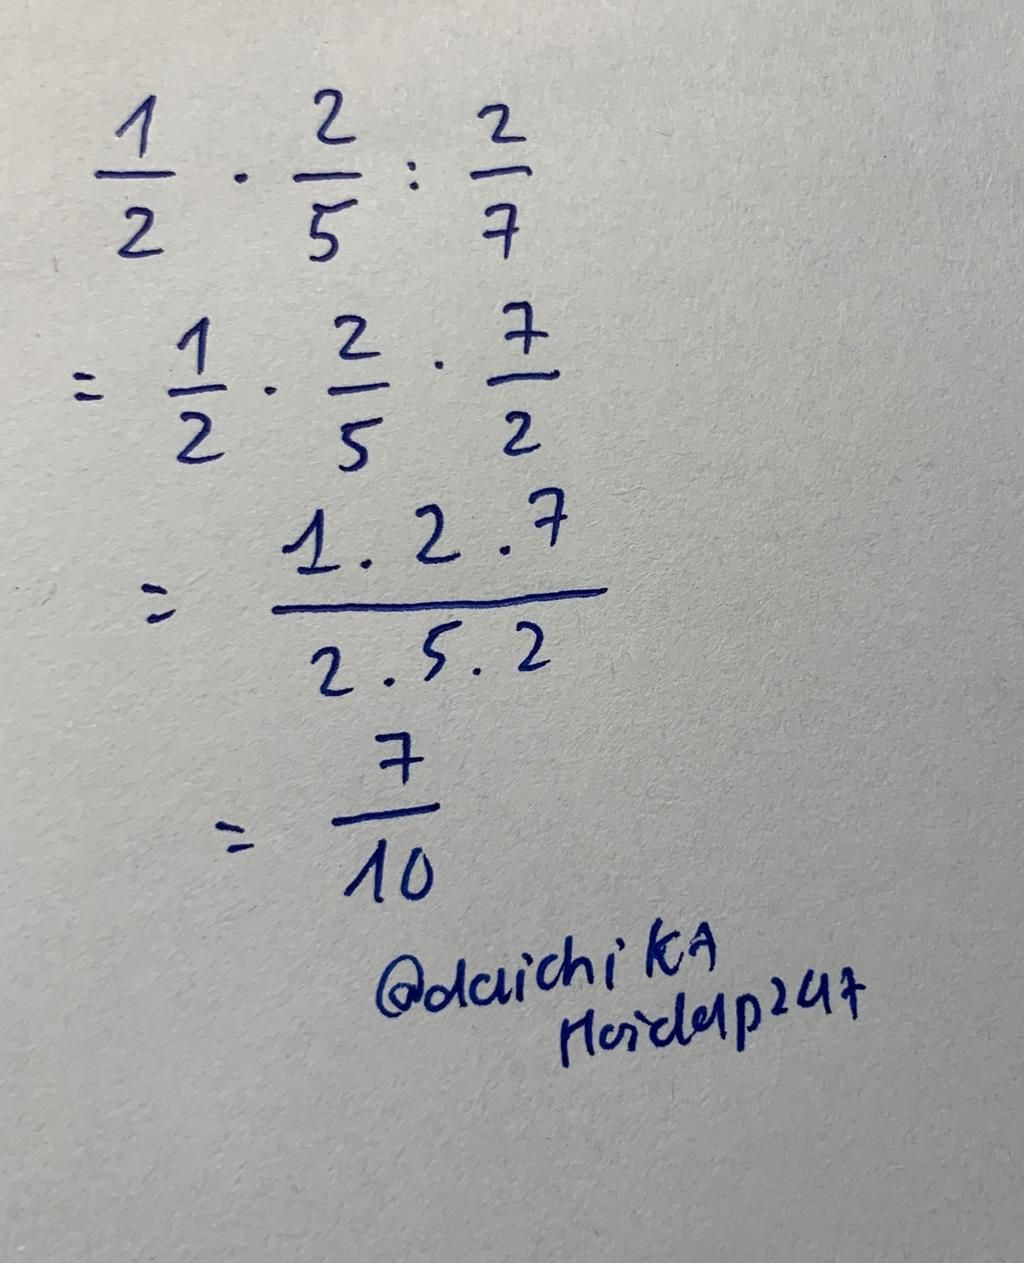 1/2 . 2/5 : 2/7
= 1/2 . 2/5 . 7/2
= 1 . 2 . 7 / 2 . 5 . 2
= 7/10
@daichiKA
Hoidap247